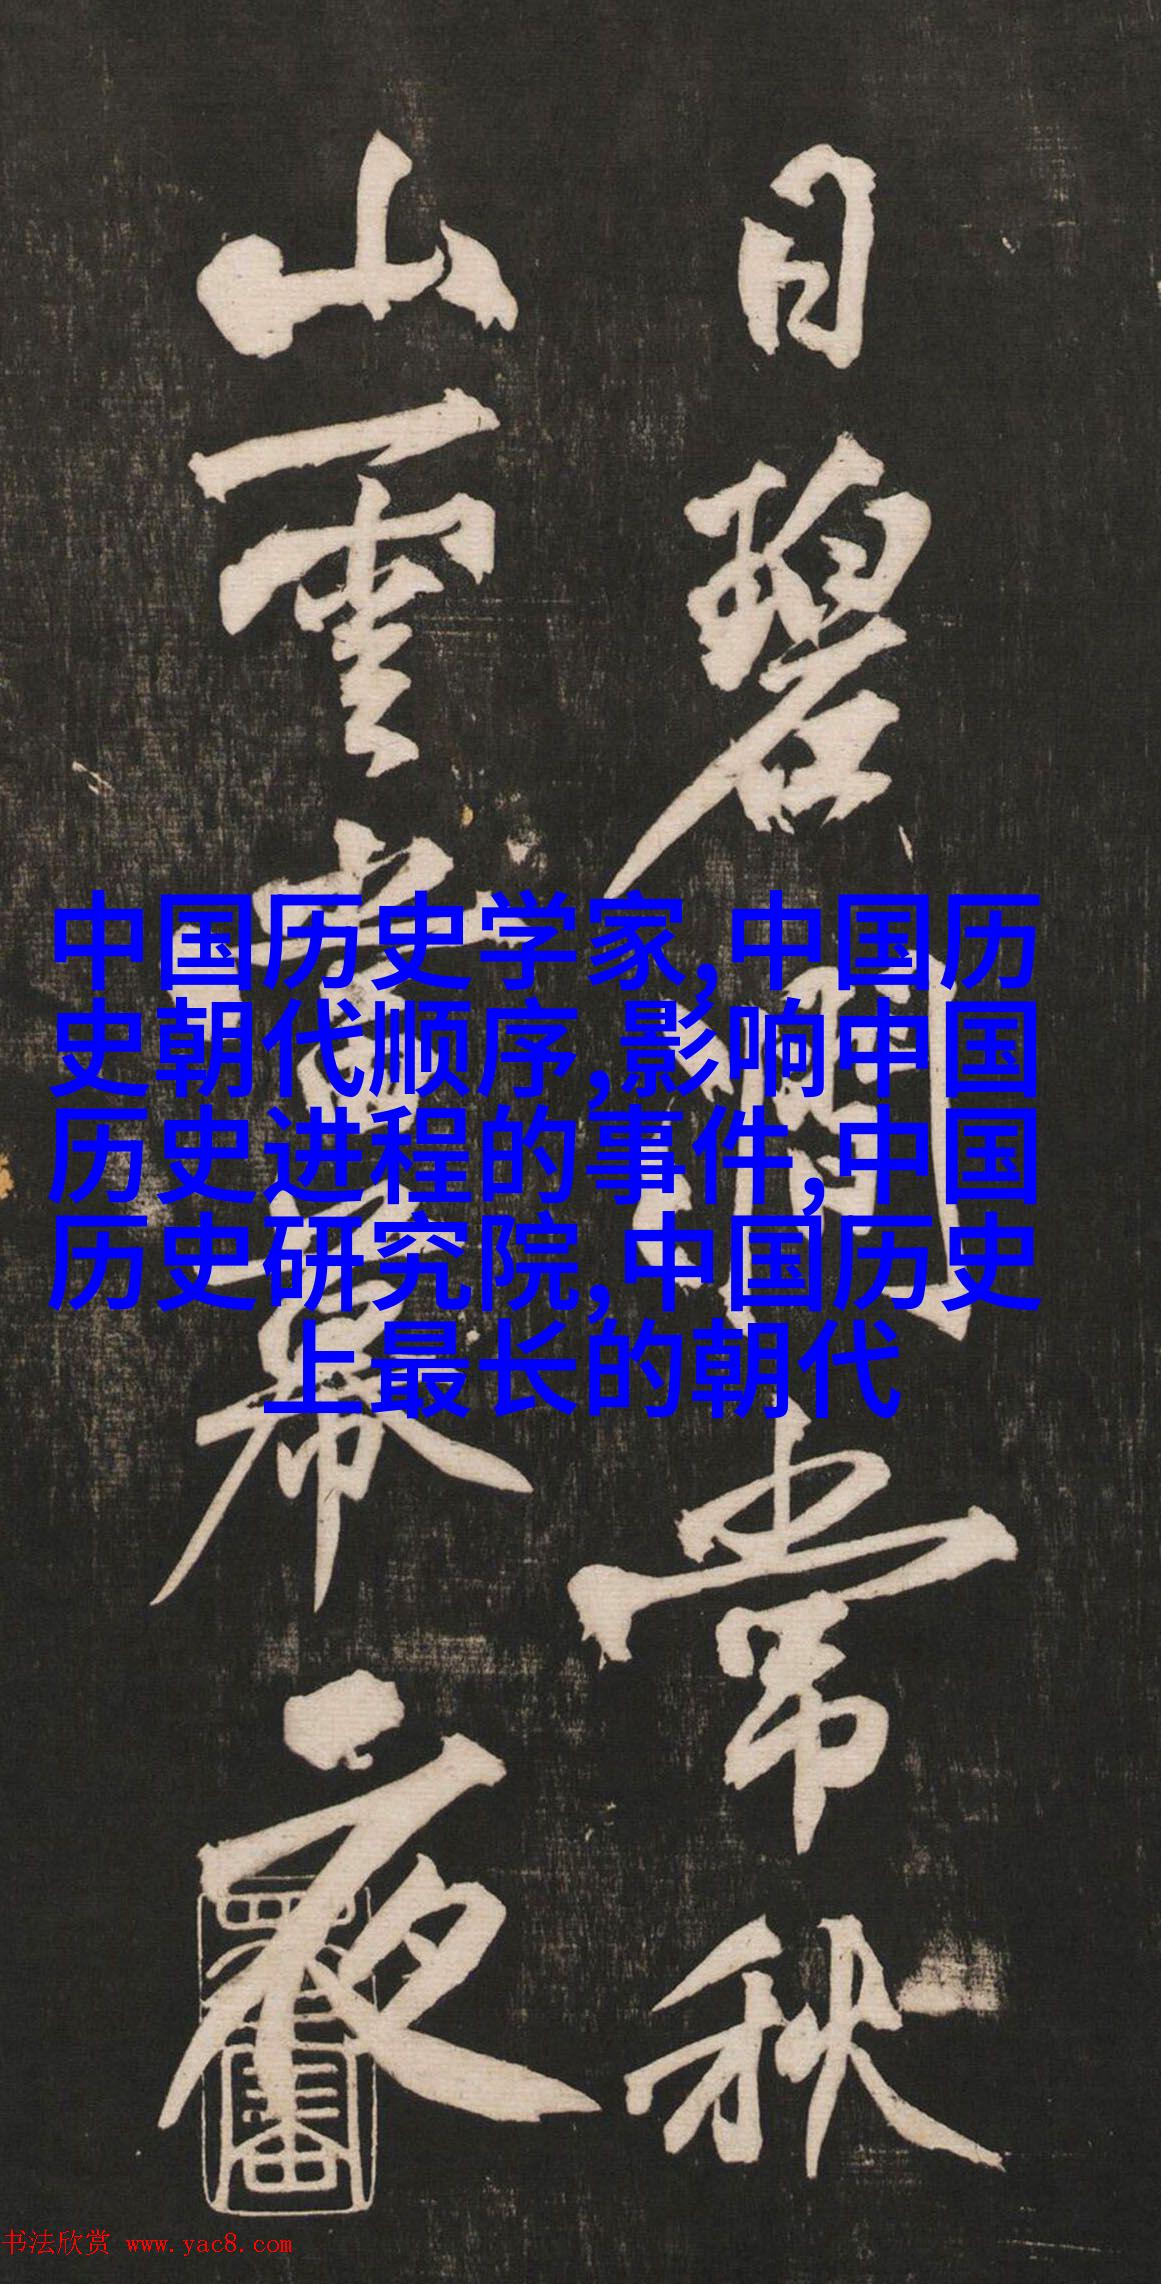 日碧澗常秋
山雲當幕夜
中国历史学家,中国历
史朝代顺序,影响中国
历史进程的事件,中国
历史研究院,中国历史
上最长的朝代
书法欣赏 www.yac8.com